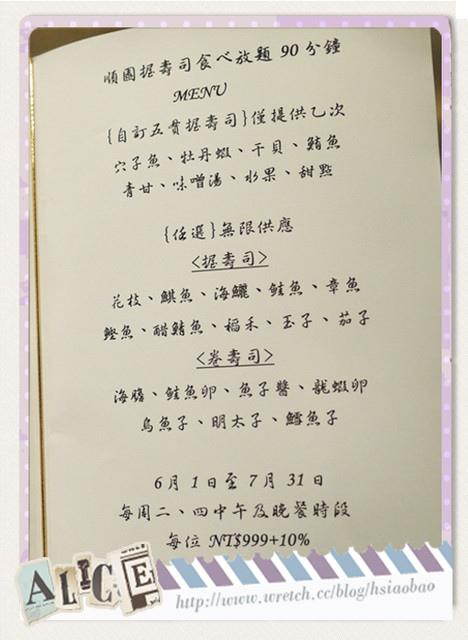 順園握壽司食べ放題 90 分鐘
MENU
{自訂五貫握壽司}僅提供乙次
穴子魚、牡丹蝦、干貝、鮪魚
青甘、味噌湯、水果、甜點
{任選}無限供應
<握壽司>
花枝、鯕魚、海鱺、鮭魚、章魚
鰹魚、醋鯖魚、稻禾、玉子、茄子
<卷壽司>
海膽、鮭魚卵、魚子醬、龍蝦卵
烏魚子、明太子、鱈魚子
6月 1日至 7月 31日
每周二、四中午及晚餐時段
每位 NT$999+10%
ALICE
http://www.wretch.cc/blog/hsiaobao